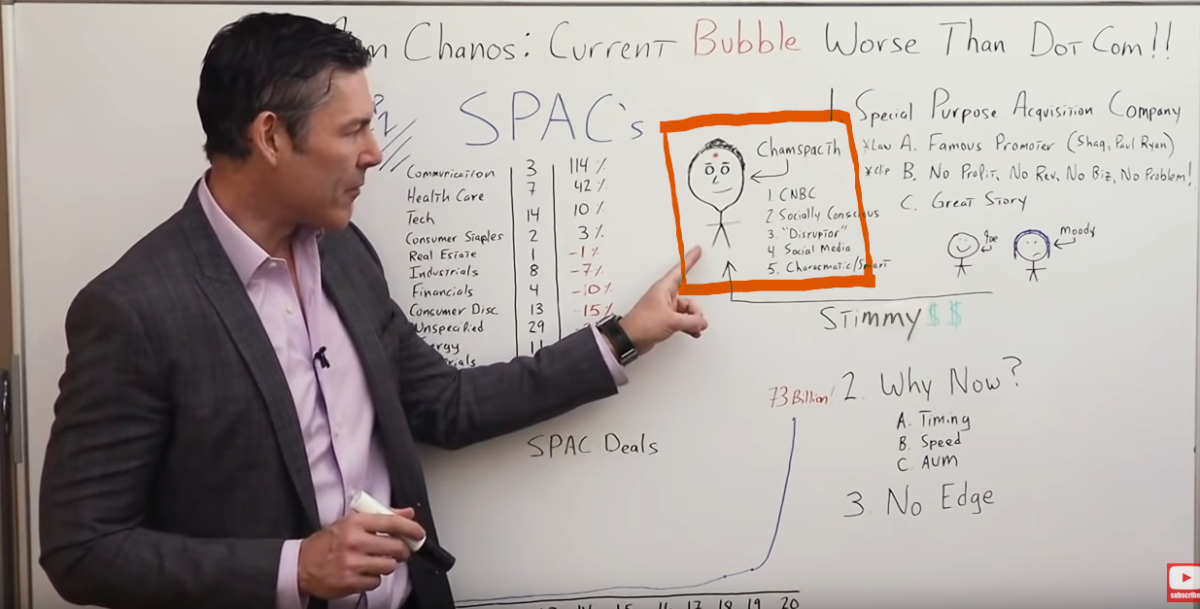 Chanos: Current Bubble Worse Than Dot Com!!
SPAC's
Communication 3 114%
Health Care 7 42%
Tech 14 10%
Consumer Staples 2 3%
Real Estate 1 -1%
Industrials 8 -7%
Financials 4 -10%
Consumer Disc 13 -15%
Unspecified 29
11
Chamspacth
1. CNBC
2 Socially Conscious
3. "Disruptor"
4. Social Media
5. Charasmatic/Smart
Stimmy $ $
1 Special Purpose Acquisition Company
*Law A. Famous Promoter (Shaq, Paul Ryan)
*clip B. No Profit, No Rev, No Biz, No Problem!
C. Great Story
Joe
Moody
73 Billion!
SPAC Deals
17 18 19 20
2. Why Now?
A. Timing
B. Speed
C. AUM
3. No Edge
subscribe